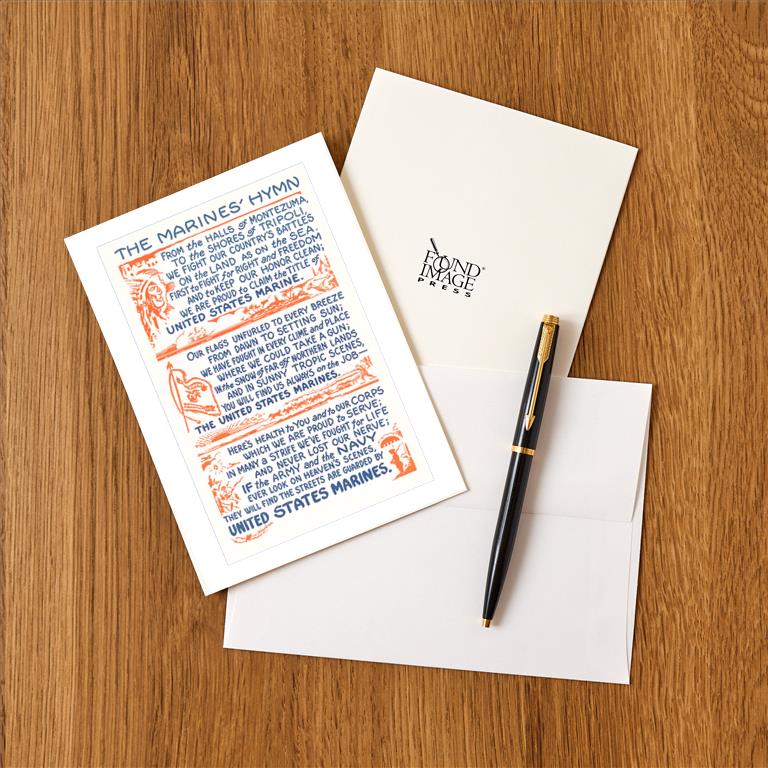 THE MARINES' HYMN
FROM the HALLS of MONTEZUMA,
TO the SHORES of TRIPOLI,
WE FIGHT OUR COUNTRY'S BATTLES
ON the LAND AS on the SEA.
FIRST to FIGHT for RIGHT and FREEDOM
AND to KEEP OUR HONOR CLEAN;
WE ARE PROUD to CLAIM the TITLE of
UNITED STATES MARINE.
OUR FLAG'S UNFURLED TO EVERY BREEZE
FROM DAWN TO SETTING SUN;
WE HAVE FOUGHT IN EVERY CLIME and PLACE
WHERE WE COULD TAKE A GUN;
IN the SNOW OF FAR off NORTHERN LANDS
AND IN SUNNY TROPIC SCENES,
YOU WILL FIND US ALWAYS on the JOB—
THE UNITED STATES MARINES.
HERE'S HEALTH to YOU and to OUR CORPS
WHICH WE ARE PROUD to SERVE;
IN MANY A STRIFE WE'VE FOUGHT for LIFE
AND NEVER LOST OUR NERVE;
IF the ARMY and the NAVY
EVER LOOK ON HEAVEN'S SCENES,
THEY WILL FIND THE STREETS ARE GUARDED BY
UNITED STATES MARINES.
FOUND
IMAGE®
PRESS